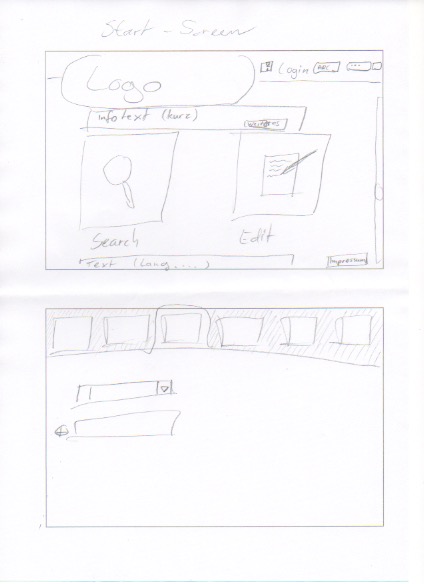 Start-Screen
Logo
Login
ABC
Infotext (kurz)
Weiteres
Search
Edit
Text (Lang....)
Impressum